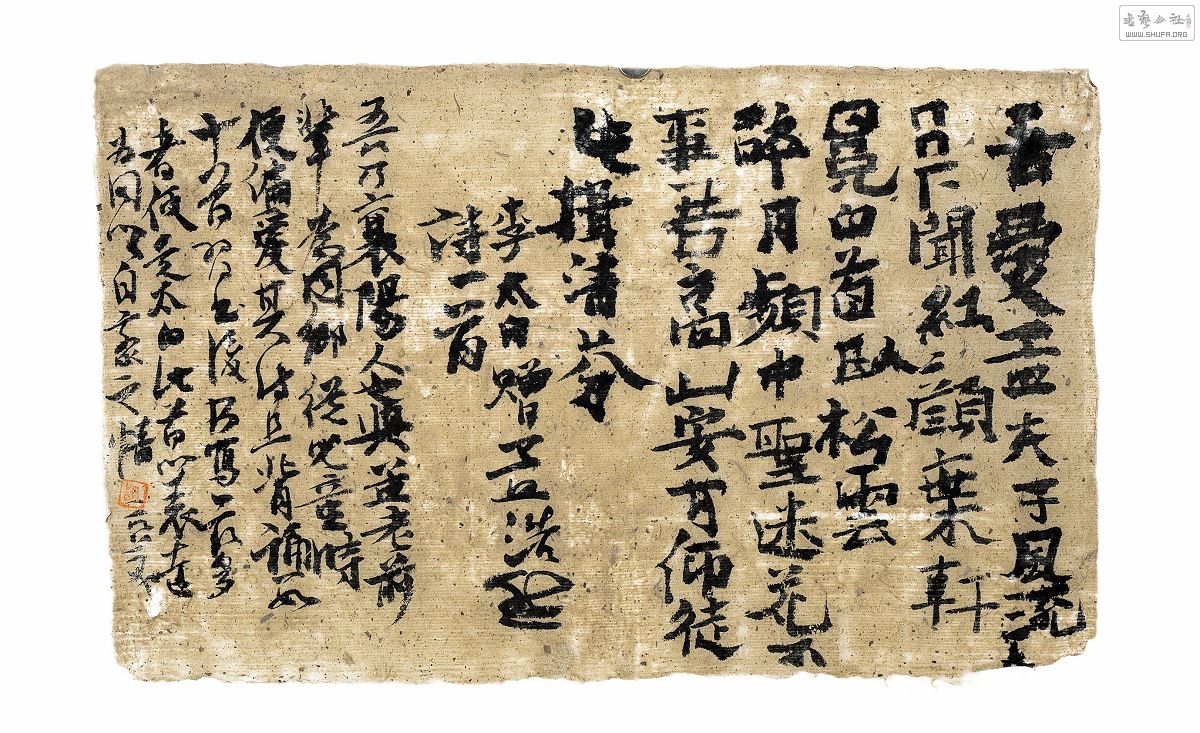 吾愛孟夫子風流天
下聞紅顏棄軒
冕白首臥松雲
醉月頻中聖迷花不
事君高山安可仰徒
此揖清芬
李太白贈孟浩然
詩一首
吾乃襄陽人也與孟老前
輩為同鄉從兒童時
便偏愛其詩且背誦
十首後寫
者太白此首以表達
之情
书艺公社
WWW.SHUFA.ORG